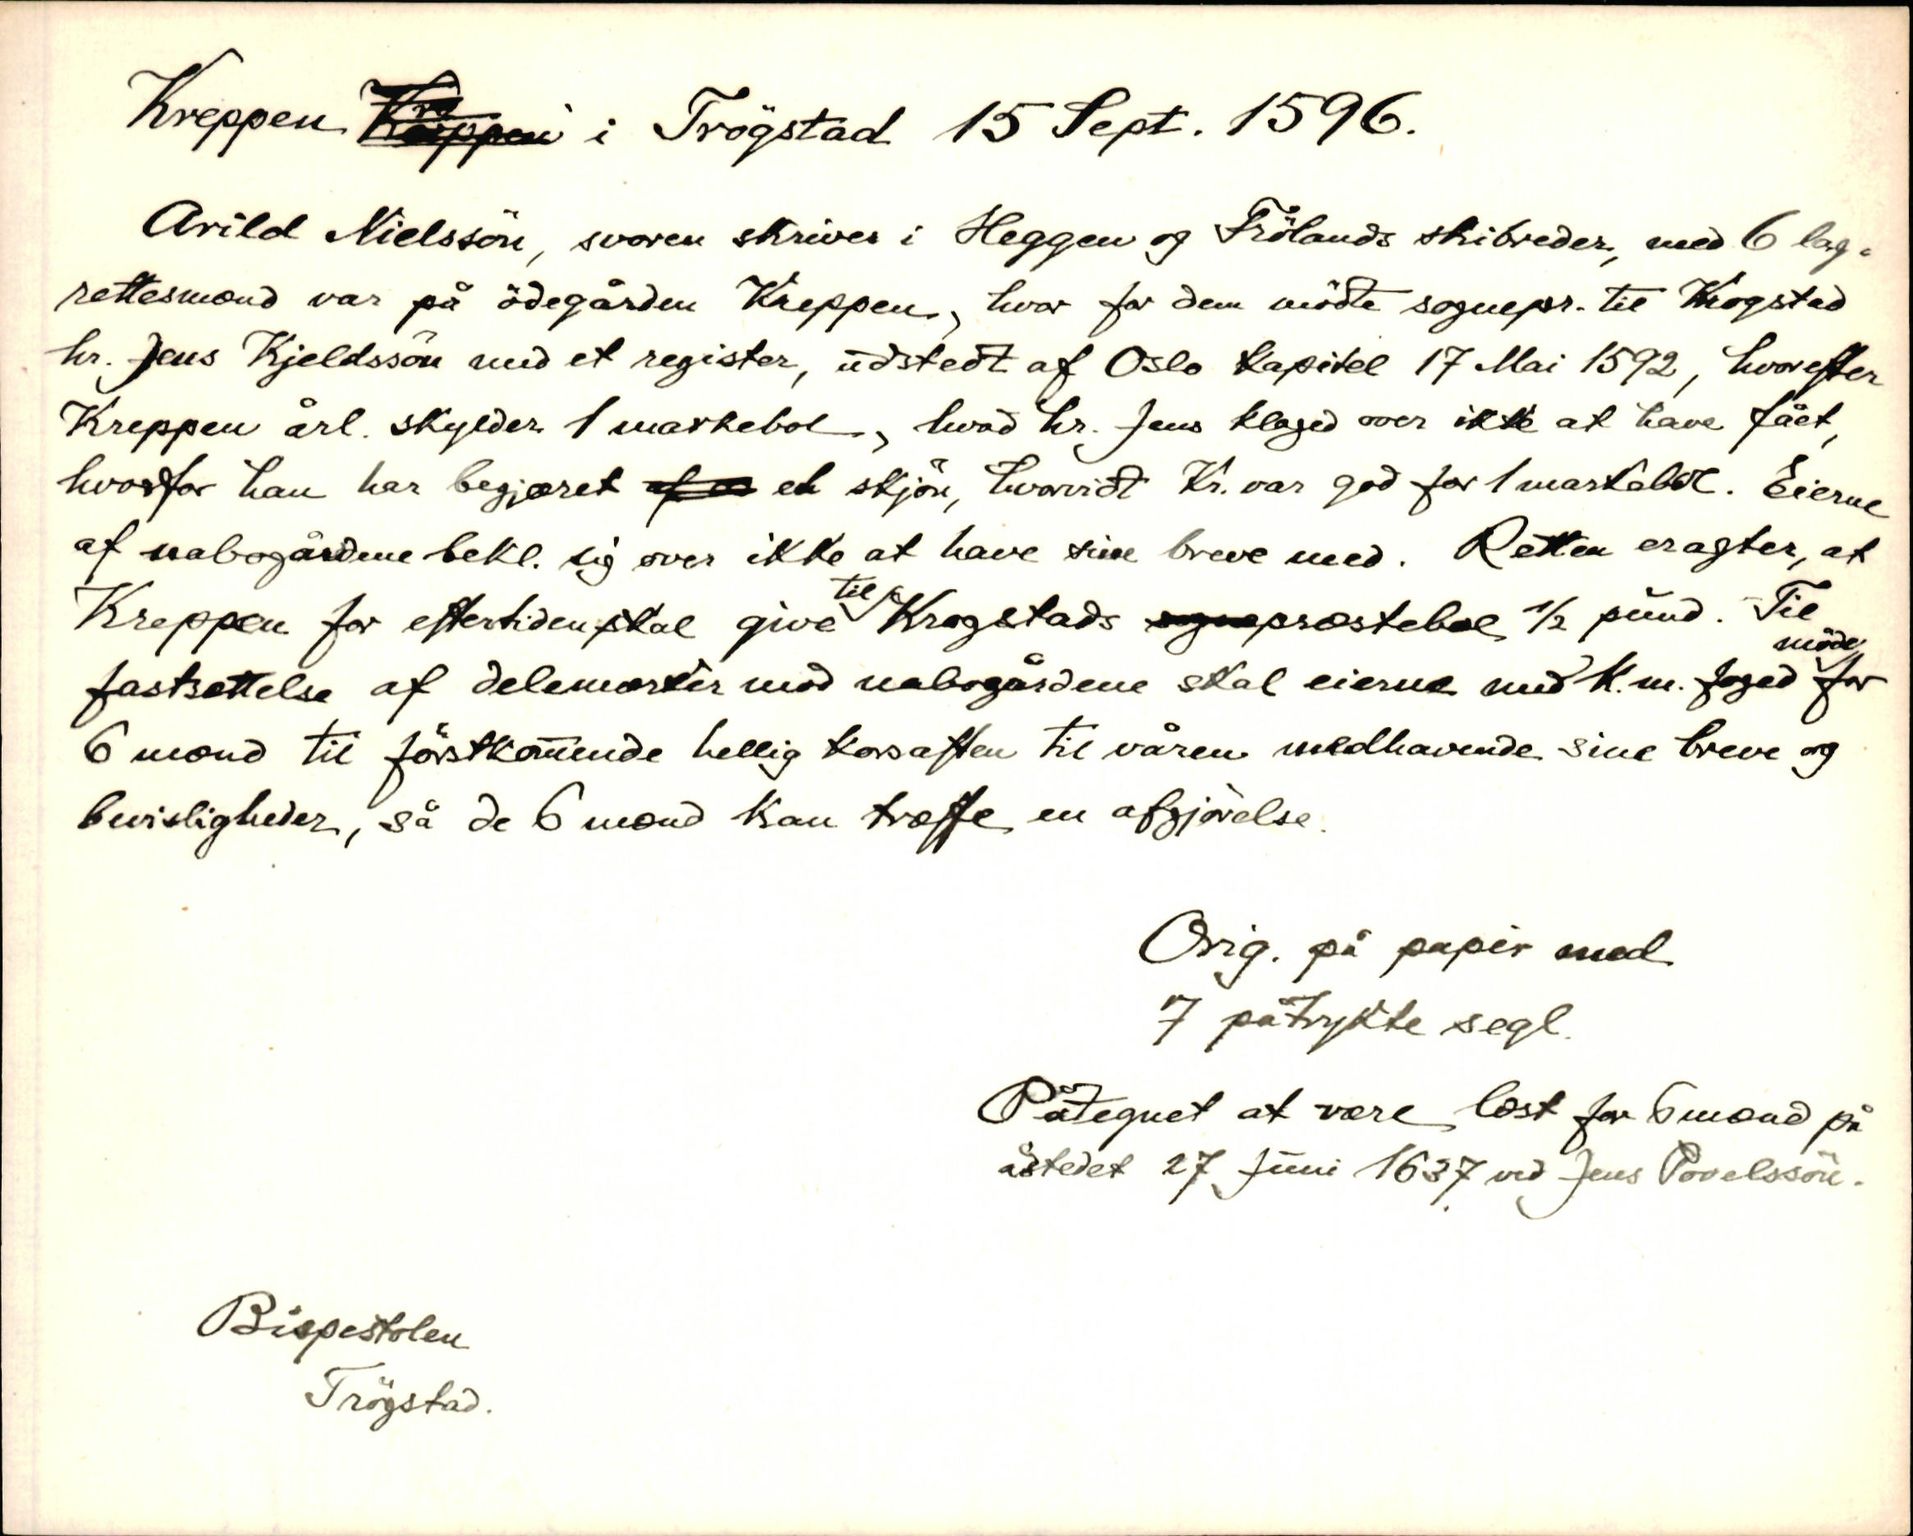 Kreppen i Trögstad 15 Sept. 1596.
Arild Nielssön, svoren skriver i Heggen og Frölands skibreder, med 6 lag-
rettesmænd var på ödegården Kreppen, hvor for dem mödte sognepr. til Krogstad
hr. Jens Kjeldssön med et register, udstedt af Oslo kapitel 17 Mai 1592, hvorefter
Kreppen årl. skylder 1 markebol, hvad hr. Jens klaged over ikke at have fået,
hvorfor han har begjæret et skjön, hvorvidt Kr. var god for 1 markebol. Eierne
af nabogårdene bekl. sig over ikke at have sine breve med. Retten eragter, at
Kreppen for eftertiden skal give til Krogstads præstebol 1/2 pund. Til
fastsættelse af delemærker mod nabogårdene skal eierne med k. m. foged möde for
6 mænd til förstkommende hellig korsaften til våren medhavende sine breve og
bevisligheder, så de 6 mænd kan træffe en afgjörelse.
Orig. på papir med
7 påtrykte segl.
Påtegnet at være læst for 6 mænd på
åstedet 27 Juni 1637 ved Jens Povelssön.
Bispestolen
Trögstad.